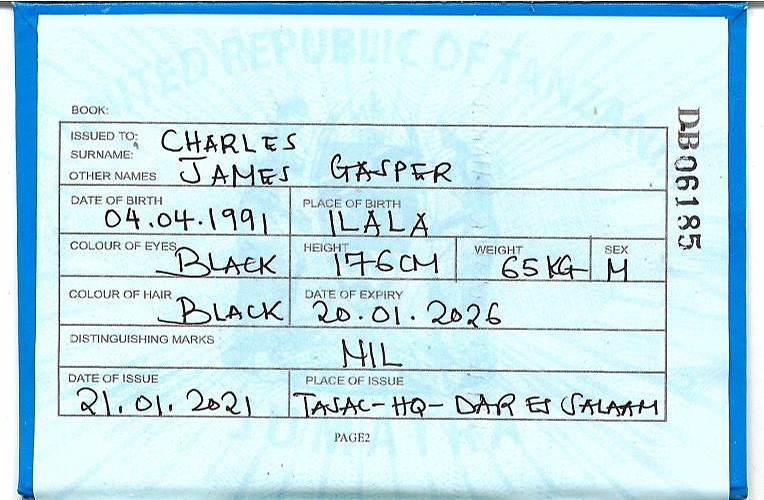 UNITED REPUBLIC OF TANZANIA
BOOK:
ISSUED TO: CHARLES
SURNAME:
OTHER NAMES JAMES GASPER
DATE OF BIRTH 04.04.1991 PLACE OF BIRTH ILALA
COLOUR OF EYES BLACK HEIGHT 176CM WEIGHT 65 KG SEX M
COLOUR OF HAIR BLACK DATE OF EXPIRY 20.01.2026
DISTINGUISHING MARKS NIL
DATE OF ISSUE 21.01.2021 PLACE OF ISSUE TASAC-HQ-DAR ES SALAAM
SUMATRA
PAGE2
DB06185